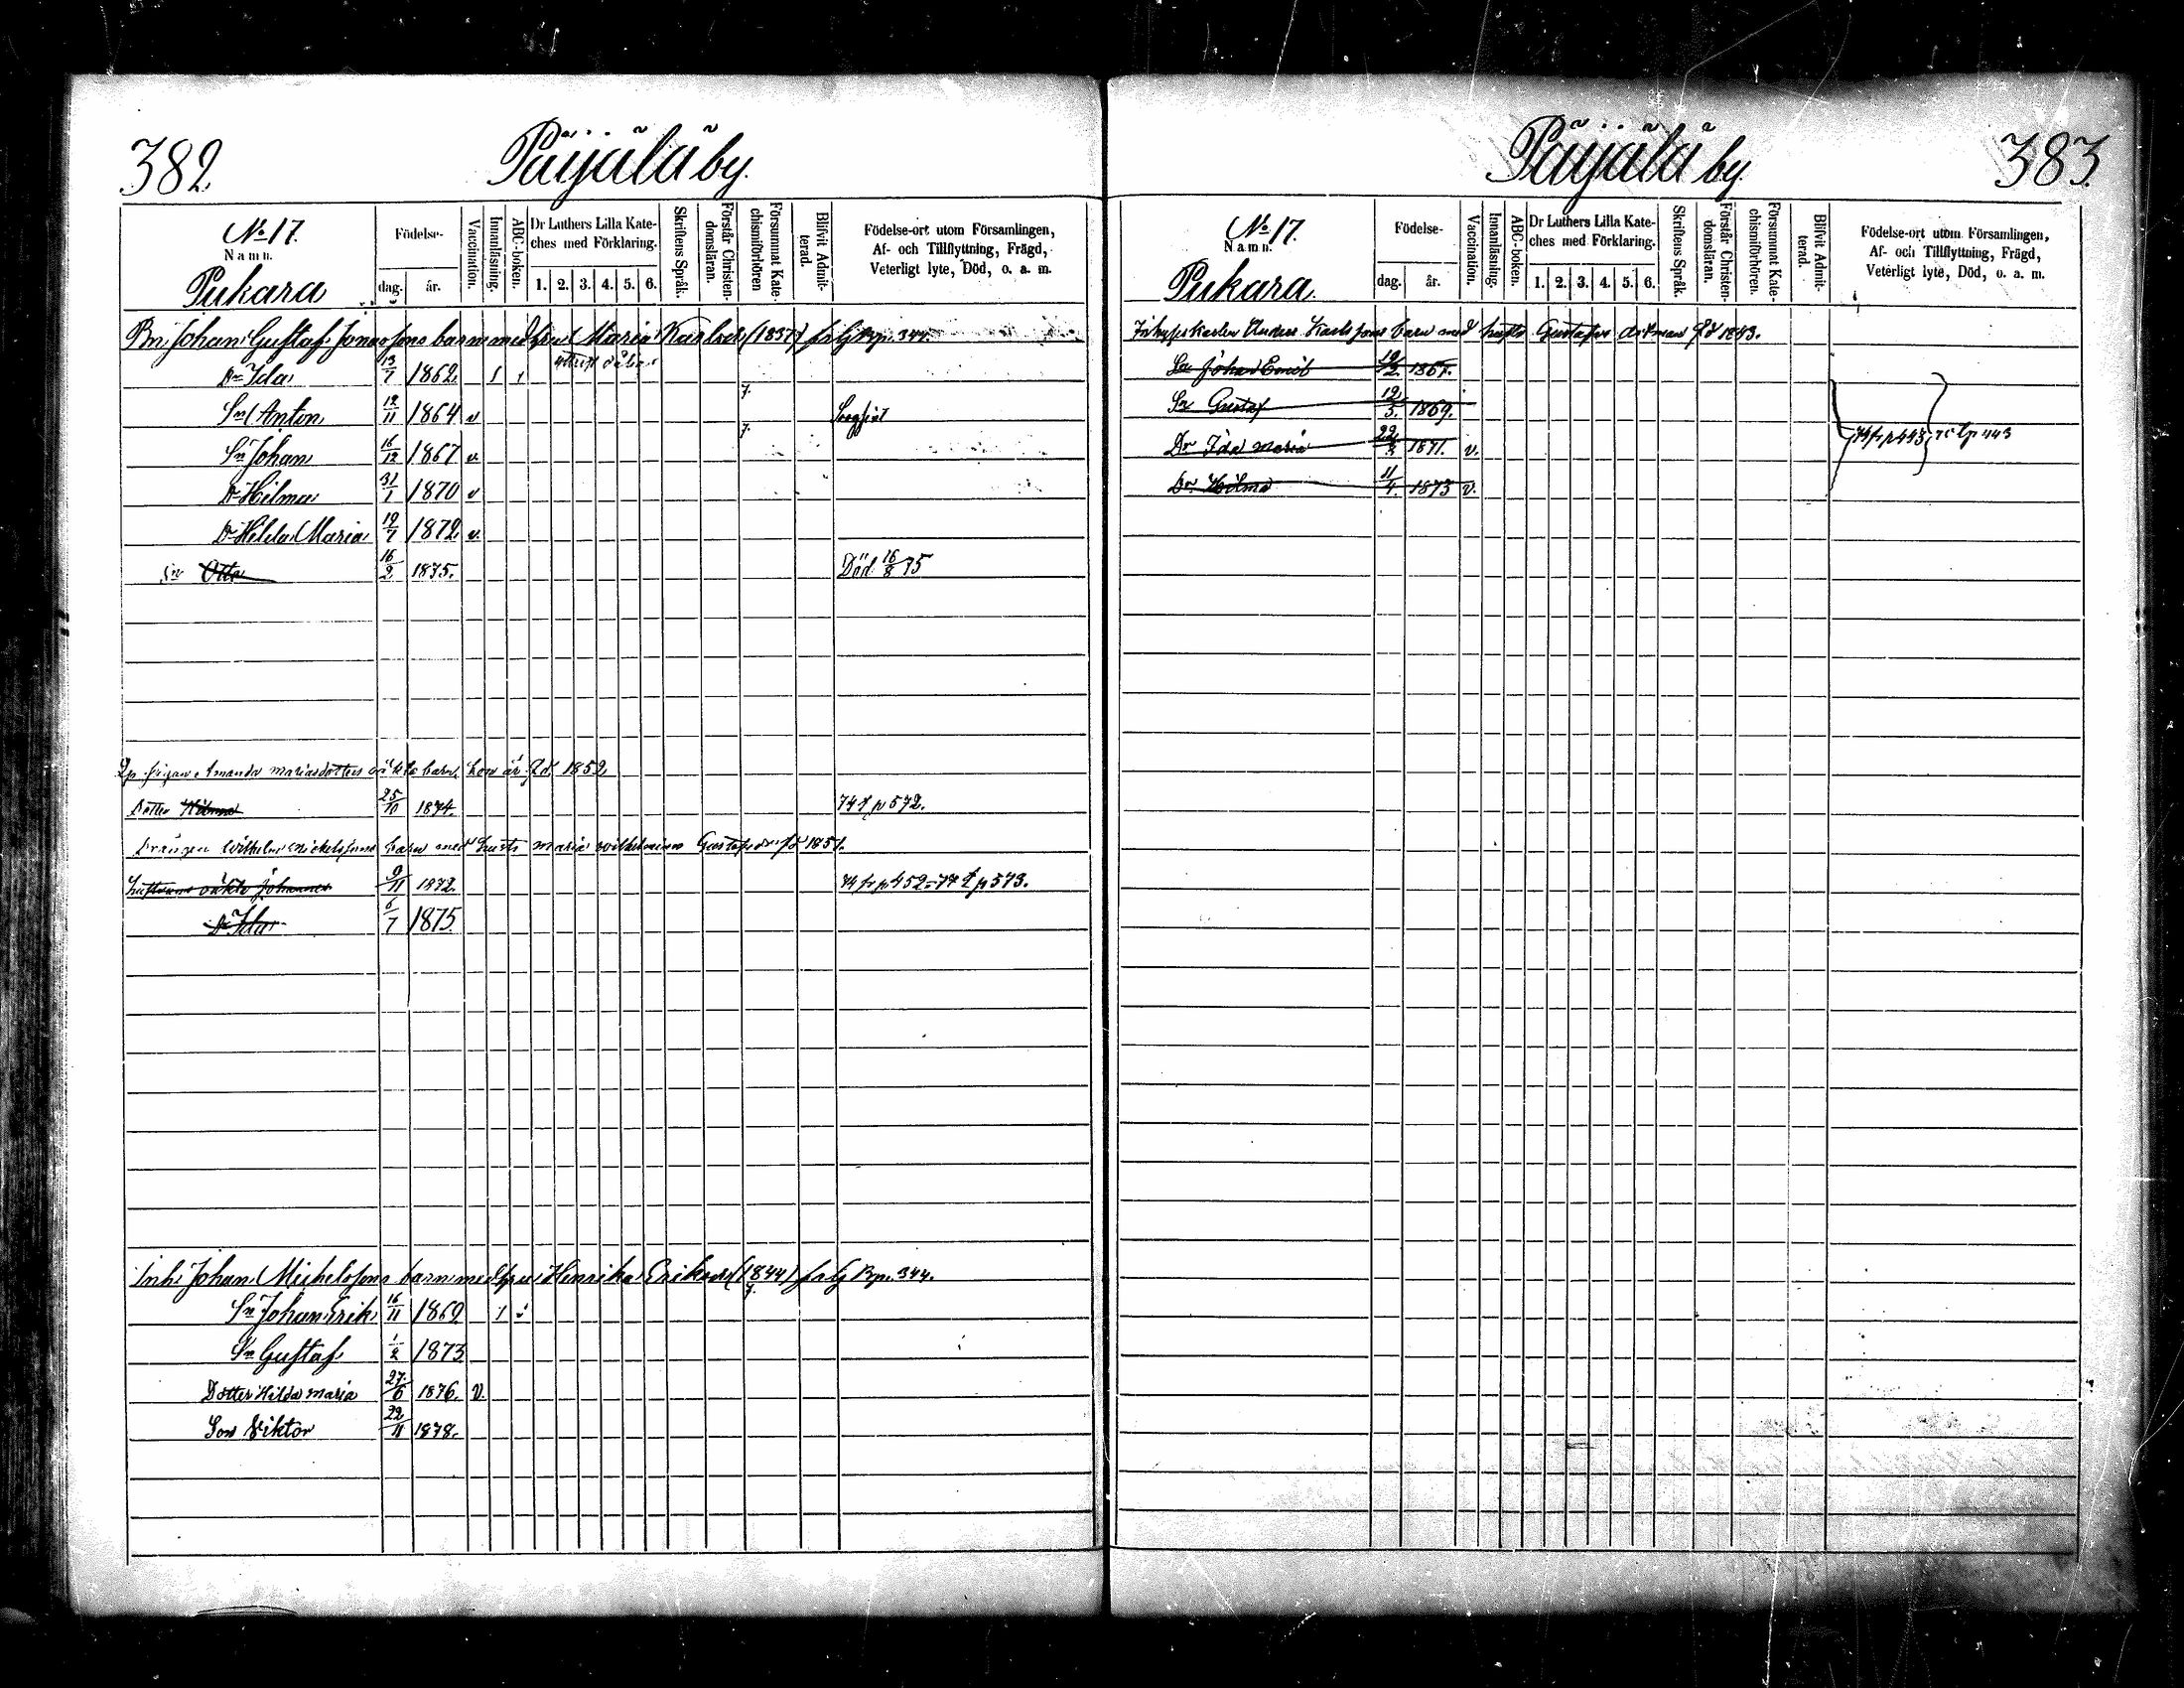 382.
Päijälä by.
No 17.
Namn.
Pukara
Födelse-
dag. år.
Vaccination.
Innanläsning.
ABC-boken.
Dr Luthers Lilla Kate-
ches med Förklaring.
1. 2. 3. 4. 5. 6.
Skriftens Språk.
Förstår Christen-
domsläran.
Försummat Kate-
chismiförhören
Blifvit Admit-
terad.
Födelse-ort utom Församlingen,
Af- och Tillflyttning, Frägd,
Veterligt lyte, Död, o. a. m.
Bn. Johan Gustaf Jonassons barn med hru Maria Karlsdr (1837) frlg Bp. 344.
Dr Ida 13/7 1862 1 1
Sn Anton 12/11 1864 v 7.
Sn Johan 16/12 1867 v. 7.
Dr Hilma 31/1 1870 v
Dr Hilda Maria 19/7 1872 v.
Sn Otto 16/2 1875. Död 16/8 75
pigan Amanda Mariasdotters oäkta barn, hon är fd 1852
Dotter Hilma 25/11 1874. 74 t p 572.
Drängen Wilhelm Mickelssons barn med hustr Maria Wilhelmina Gustafsdr fd 1851.
hustruns oäkta Johannes 9/11 1872. 74 fr p 452 = 77 t p 573.
Dr Ida 6/7 1875.
Inh. Johan Michelssons barn med hru Henrika Eriksdr (1844) frlg Bp. 344.
Sn Johan Erik 16/11 1869 1
Sn Gustaf 1/2 1873
Dotter Hilda Maria 27/6 1876. V.
Son Viktor 22/11 1878.
Päijälä by
383.
No 17.
Namn.
Pukara.
Födelse-
dag. år.
Vaccination.
Innanläsning.
ABC-boken.
Dr Luthers Lilla Kate-
ches med Förklaring.
1. 2. 3. 4. 5. 6.
Skriftens Språk.
Förstår Christen-
domsläran.
Försummat Kate-
chismiförhören.
Blifvit Admit-
terad.
Födelse-ort utom Församlingen,
Af- och Tillflyttning, Frägd,
Veterligt lyte, Död, o. a. m.
Inhyseskarlen Anders Karlssons barn med hustr Gustafva fd 1843.
Sn Johan Emil 19/2 1867.
Sn Gustaf 12/5. 1869.
Dr Ida Maria 22 1871. v. 74 fr p 443 t p 443
Dr Hilma 11/4. 1873 v.